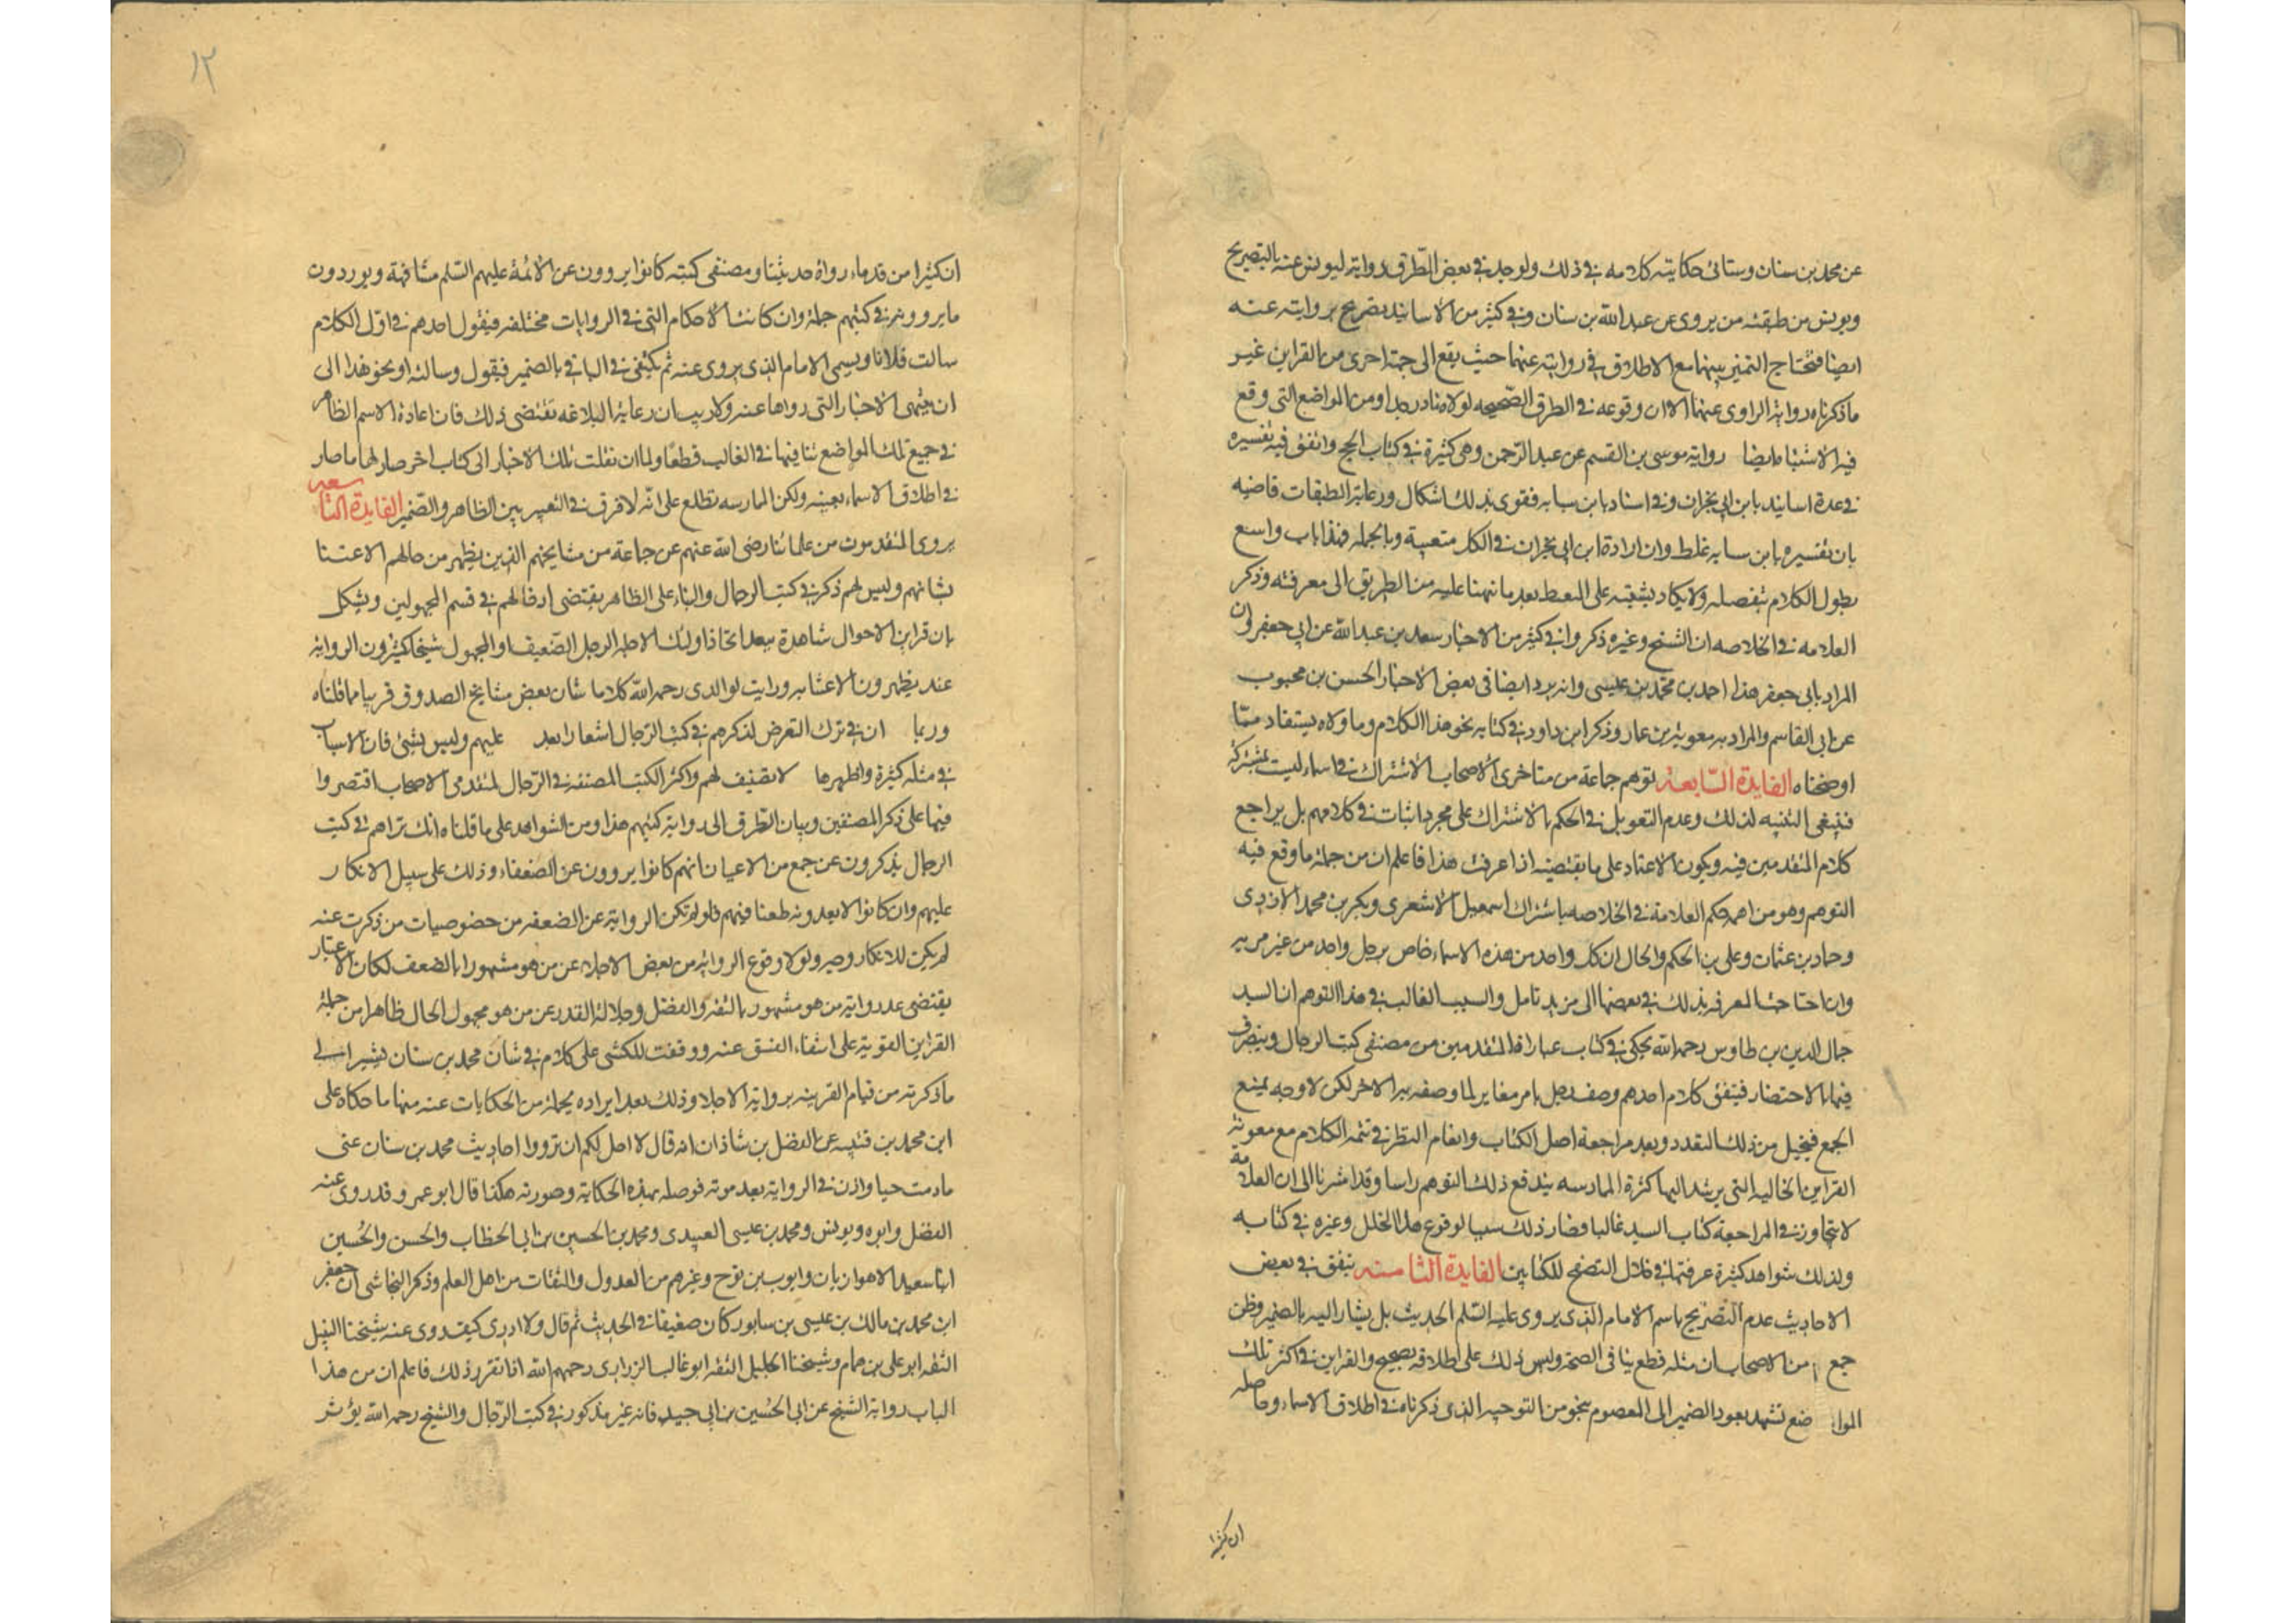 عن محمد بن سنان وستأتى حكايته كلامه فى ذلك ولو جد فى بعض الطرق رواية ليونس عنه بالتصريح
ويونس من طبقته من يروى عن عبد الله بن سنان وفى كثير من الاسانيد تصريح بروايته عنه
ايضا فتحتاج التميز بينهما مع الاطلاق فى روايته عنهما حيث يقع الى جهة اخرى من القراين غير
ما ذكرناه رواية الراوى عنهما الا ان وقوعه فى الطرق الصحيحه لولاه نادر جدا ومن المواضع التى وقع
فيه الاشتباه ايضا رواية موسى بن القسم عن عبد الرحمن وهى كثيرة فى كتاب الحج واتفق فيه تفسيره
فى عدة اسانيد بابن ابى نجران وفى اسناد بابن سيابه فقوى بذلك اشكال ورعاية الطبقات قاضيه
بان تفسيره بابن سيابه غلط وان ارادة ابن ابى نجران فى الكل متعينة وبالجمله فهذا باب واسع
يطول الكلام بتفصيله ولا يكاد يشتبه على الممعط بعد ما نبهنا عليه من الطريق الى معرفته وذكر
العلامه فى الخلاصه ان الشيخ وغيره ذكروا فى كثير من الاخبار سعد بن عبد الله عن ابى جعفر وان
المراد بابى جعفر هذا احمد بن محمد بن عيسى وانه يرد ايضا فى بعض الاخبار الحسن بن محبوب
عن ابى القاسم والمراد به معوية بن عمار وذكر ابن داود فى كتابه نحو هذا الكلام وما ولاه يستفاد مما
اوضحناه الفايدة السابعه توهم جماعة من متاخرى الاصحاب الاشتراك فى اسماء ليست بمشتركة
فينبغى التنبيه لذلك وعدم التعويل فى الحكم بالاشتراك على مجرد اثبات فى كلامهم بل يراجع
كلام المتقدمين فيه ويكون الاعتماد على ما يقتضيه اذا عرفت هذا فاعلم ان من جملة ما وقع فيه
التوهم وهو من اهمه حكم العلامة فى الخلاصه باشتراك اسمعيل الاشعرى وبكر بن محمد الازدى
وحماد بن عثمان وعلى بن الحكم والحال ان كل واحد من هذه الاسماء خاص برجل واحد من غير مريه
وان احتاجت المعرفه بذلك فى بعضها الى مزيد تامل والسبب الغالب فى هذا التوهم ان السيد
جمال الدين بن طاوس رحمه الله يحكى فى كتاب عبارات المتقدمين من مصنفى كتب الرجال ويتصرف
فيها بالاختصار فيتفق كلام احدهم وصف رجل بامر مغاير لما وصفه به الاخر لكن لا وجه يمنع
الجمع فيخيل من ذلك التعدد وبعد مراجعة اصل الكتاب وانعام النظر فى تتمة الكلام مع معونة
القراين الحاليه التى يرشد اليها كثرة الممارسه يندفع ذلك التوهم راسا وقد اشرنا الى ان العلامة
لا يتجاوز فى المراجعة كتاب السيد غالبا فصار ذلك سببا لوقوع هذا الخلل وغيره فى كتابه
ولذلك شواهد كثيرة عرفتها فى خلال التصفح للكتابين الفايدة الثامنه يتفق فى بعض
الاحاديث عدم التصريح باسم الامام الذى يروى عليه السلم الحديث بل يشار اليه بالضمير وظن
جمع من الاصحاب ان مثله قطع ينافى الصحة وليس ذلك على اطلاقه بصحيح والقراين فى اكثر تلك
المواضع تشهد بعود الضمير الى المعصوم بنحو من التوجيه الذى ذكرناه فى اطلاق الاسماء وحاصله
ان كثيرا
١٢
ان كثيرا من قدماء رواة حديثنا ومصنفى كتبه كانوا يروون عن الائمة عليهم السلم مشافهة ويوردون
ما يروونه فى كتبهم جملة وان كانت الاحكام التى فى الروايات مختلفه فيقول احدهم فى اول الكلام
سالت فلانا ويسمى الامام الذى يروى عنه ثم يكتفى فى الباقى بالضمير فيقول وسالته او نحو هذا الى
ان ينتهى الاخبار التى رواها عنه ولا ريب ان رعاية البلاغه تقتضى ذلك فان اعادة الاسم الظاهر
فى جميع تلك المواضع تنافيها فى الغالب قطعا ولما ان نقلت تلك الاخبار الى كتاب اخر صار لها ما صار
فى اطلاق الاسماء بعينه ولكن الممارسه تطلع على انه لا فرق فى التعبير بين الظاهر والضمير الفايدة التاسعه
يروى المتقدمون من علمائنا رضى الله عنهم عن جماعة من مشايخهم الذين يظهر من حالهم الاعتنا
بشانهم وليس لهم ذكر فى كتب الرجال والبناء على الظاهر يقتضى ادخالهم فى قسم المجهولين ويشكل
بان قراين الاحوال شاهدة ببعد اتخاذ اولئك الاجله الرجل الضعيف او المجهول شيخا يكثرون الرواية
عنه يظهرون الاعتنا به ورايت لوالدى رحمه الله كلاما شان بعض مشايخ الصدوق قريبا مما قلناه
وربما ان فى ترك التعرض لذكرهم فى كتب الرجال اشعارا بعد عليهم وليس بشئ فان الاسباب
فى مثله كثيرة واظهرها لا تصنيف لهم واكثر الكتب المصنفه فى الرجال لمتقدمى الاصحاب اقتصروا
فيها على ذكر المصنفين وبيان الطرق الى رواية كتبهم هذا ومن الشواهد على ما قلناه انك تراهم فى كتب
الرجال يذكرون عن جمع من الاعيان انهم كانوا يروون عن الضعفاء وذلك على سبيل الانكار
عليهم وان كانوا لا يعدونه طعنا فيهم فلو لم تكن الرواية عن الضعفه من خصوصيات من ذكرت عنه
لم يكن للانكار وجه ولولا وقوع الرواية من بعض الاجلاء عن من هو مشهور بالضعف لكان الاعتبار
يقتضى عد رواية من هو مشهور بالثقه والفضل وجلالة القدر عن من هو مجهول الحال ظاهرا من جملة
القراين القوية على انتفاء الفسق عنه ووقفت للكشى على كلام فى شان محمد بن سنان يشير الى
ما ذكرته من قيام القرينه برواية الاجلا وذلك بعد ايراده لجملة من الحكايات عنه منها ما حكاه على
ابن محمد بن قتيبه عن الفضل بن شاذان انه قال لا احل لكم ان ترووا احاديث محمد بن سنان عنى
ما دمت حيا واذن فى الرواية بعد موته فوصله بهذه الحكاية وصورته هكذا قال ابو عمرو قد روى عنه
الفضل وابوه ويونس ومحمد بن عيسى العبيدى ومحمد بن الحسين بن ابى الخطاب والحسن والحسين
ابنا سعيد الاهوازيان وايوب بن نوح وغيرهم من العدول والثقات من اهل العلم وذكر النجاشى ان جعفر
ابن محمد بن مالك بن عيسى بن سابور كان ضعيفا فى الحديث ثم قال ولا ادرى كيف روى عنه شيخنا النبيل
الثقه ابو على بن همام وشيخنا الجليل الثقه ابو غالب الزرارى رحمهم الله اذا تقرر ذلك فاعلم ان من هذا
الباب رواية الشيخ عن ابى الحسين بن ابى جيد فانه غير مذكور فى كتب الرجال والشيخ رحمه الله يؤثر